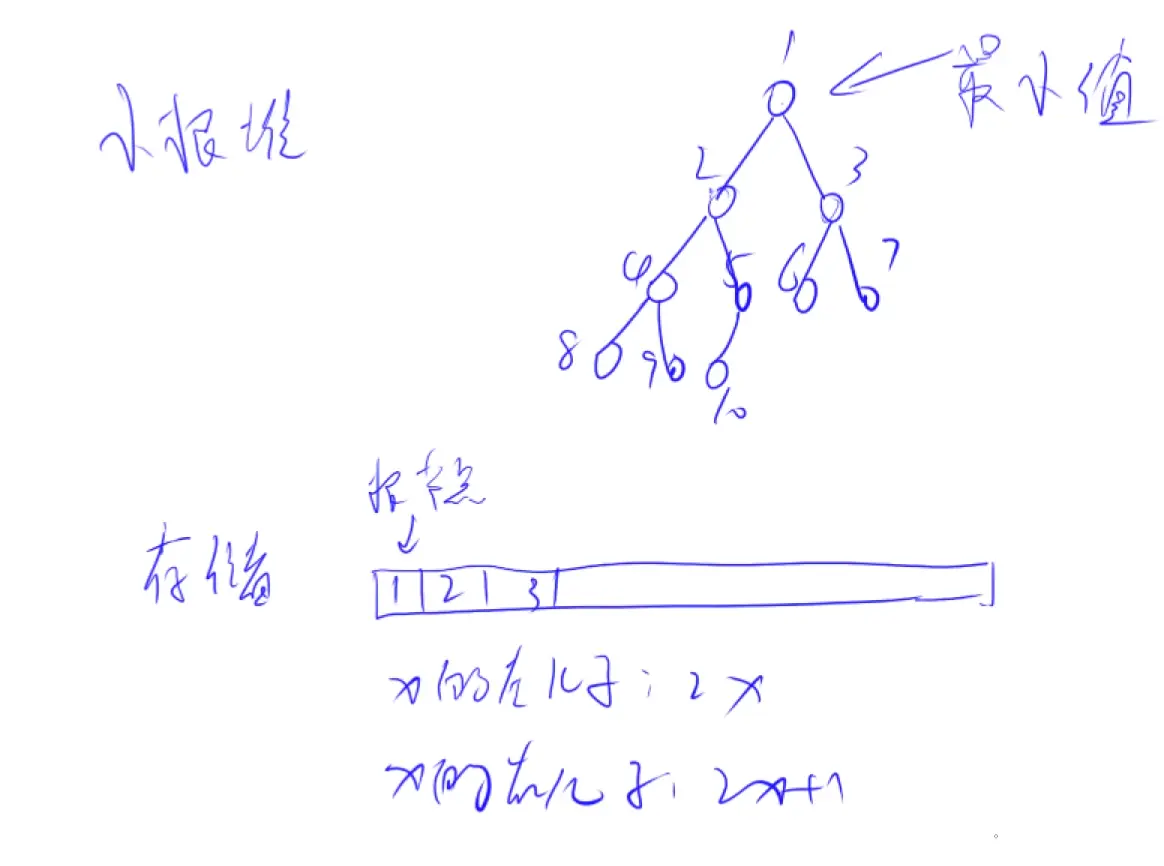 1
最小值
小根堆
2 3
4 5 6 7
8 9 10
根节点
存储
1 2 3
x的左儿子：2x
x的右儿子：2x+1